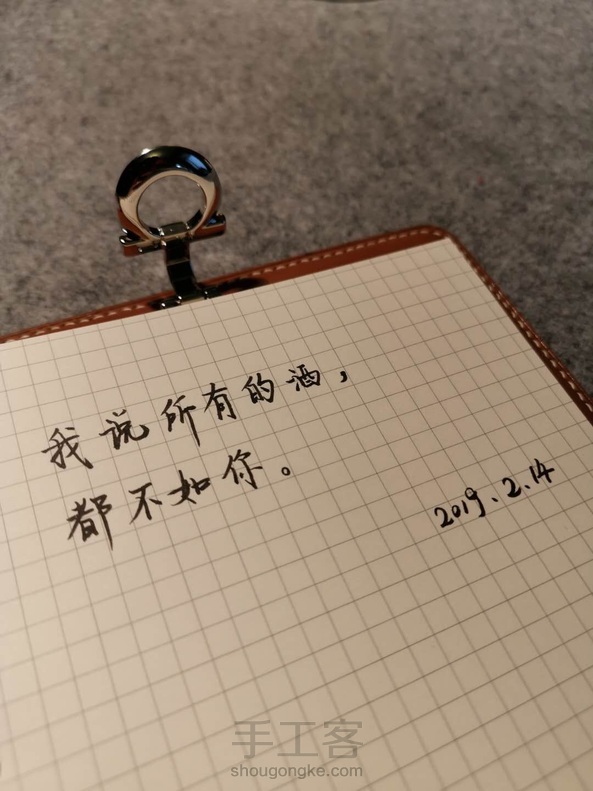 我说所有的酒，
都不如你。
2019.2.14
手工客
shougongke.com